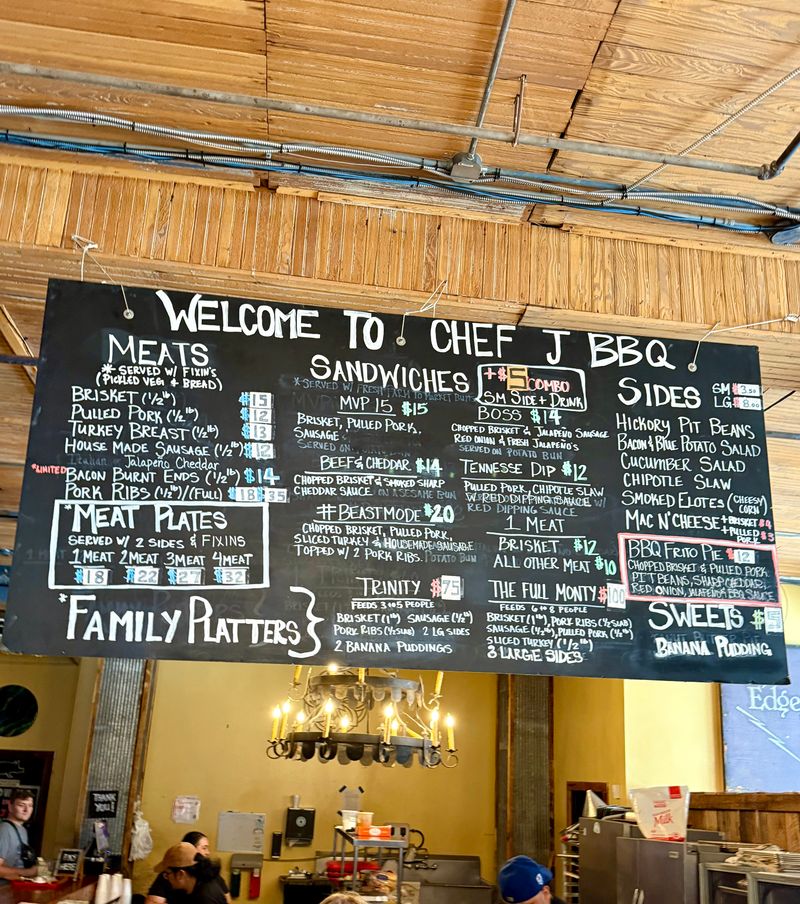 WELCOME TO CHEF J BBQ
MEATS
* SERVED W/ FIXIN'S
(PICKLED VEG & BREAD)
BRISKET (½ lb) $15
PULLED PORK (½ lb) $12
TURKEY BREAST (½ lb) $13
HOUSE MADE SAUSAGE (½ lb) $12
Jalapeño Cheddar
BACON BURNT ENDS (½ lb) $14
PORK RIBS (½)/(FULL) $18 $35
*MEAT PLATES
SERVED W/ 2 SIDES & FIXINS
1 MEAT 2 MEAT 3 MEAT 4 MEAT
$18 $22 $27 $32
*FAMILY PLATTERS
SANDWICHES
*SERVED W/ FRESH FARM TO MARKET BUNS
MVP 15 $15
BRISKET, PULLED PORK,
SAUSAGE
SERVED ON
BEEF & CHEDDAR $14
CHOPPED BRISKET & SMOKED SHARP
CHEDDAR SAUCE ON A SESAME BUN
#BEASTMODE $20
CHOPPED BRISKET, PULLED PORK,
SLICED TURKEY & HOUSEMADE SAUSAGE
TOPPED W/ 2 PORK RIBS. POTATO BUN
TRINITY $75
FEEDS 3 to 5 PEOPLE
BRISKET (1 lb) SAUSAGE (½ lb)
PORK RIBS (½ SLAB) 2 LG SIDES
2 BANANA PUDDINGS
+ $5 COMBO
SM SIDE + DRINK
BOSS $14
CHOPPED BRISKET & JALAPEÑO SAUSAGE
RED ONION & FRESH JALAPEÑO'S
SERVED ON POTATO BUN
TENNESSE DIP $12
PULLED PORK, CHIPOTLE SLAW
W/ RED DIPPING SAUCE W/
RED DIPPING SAUCE
1 MEAT
BRISKET $12
ALL OTHER MEAT $10
THE FULL MONTY
FEEDS 6 to 8 PEOPLE
BRISKET (1 lb), PORK RIBS (½ SLAB)
SAUSAGE (½ lb), PULLED PORK (½ lb)
SLICED TURKEY (½ lb)
3 LARGE SIDES
SIDES SM $3.50
LG $8.00
HICKORY PIT BEANS
BACON & BLUE POTATO SALAD
CUCUMBER SALAD
CHIPOTLE SLAW
SMOKED ELOTES (CHEESY CORN)
MAC N' CHEESE + BRISKET $4
+ PULLED PORK $3
BBQ FRITO PIE $12
CHOPPED BRISKET & PULLED PORK
PIT BEANS, SHARP CHEDDAR,
RED ONION, JALAPEÑO & BBQ SAUCE
SWEETS
BANANA PUDDING
Edge
THANK YOU!
Milk